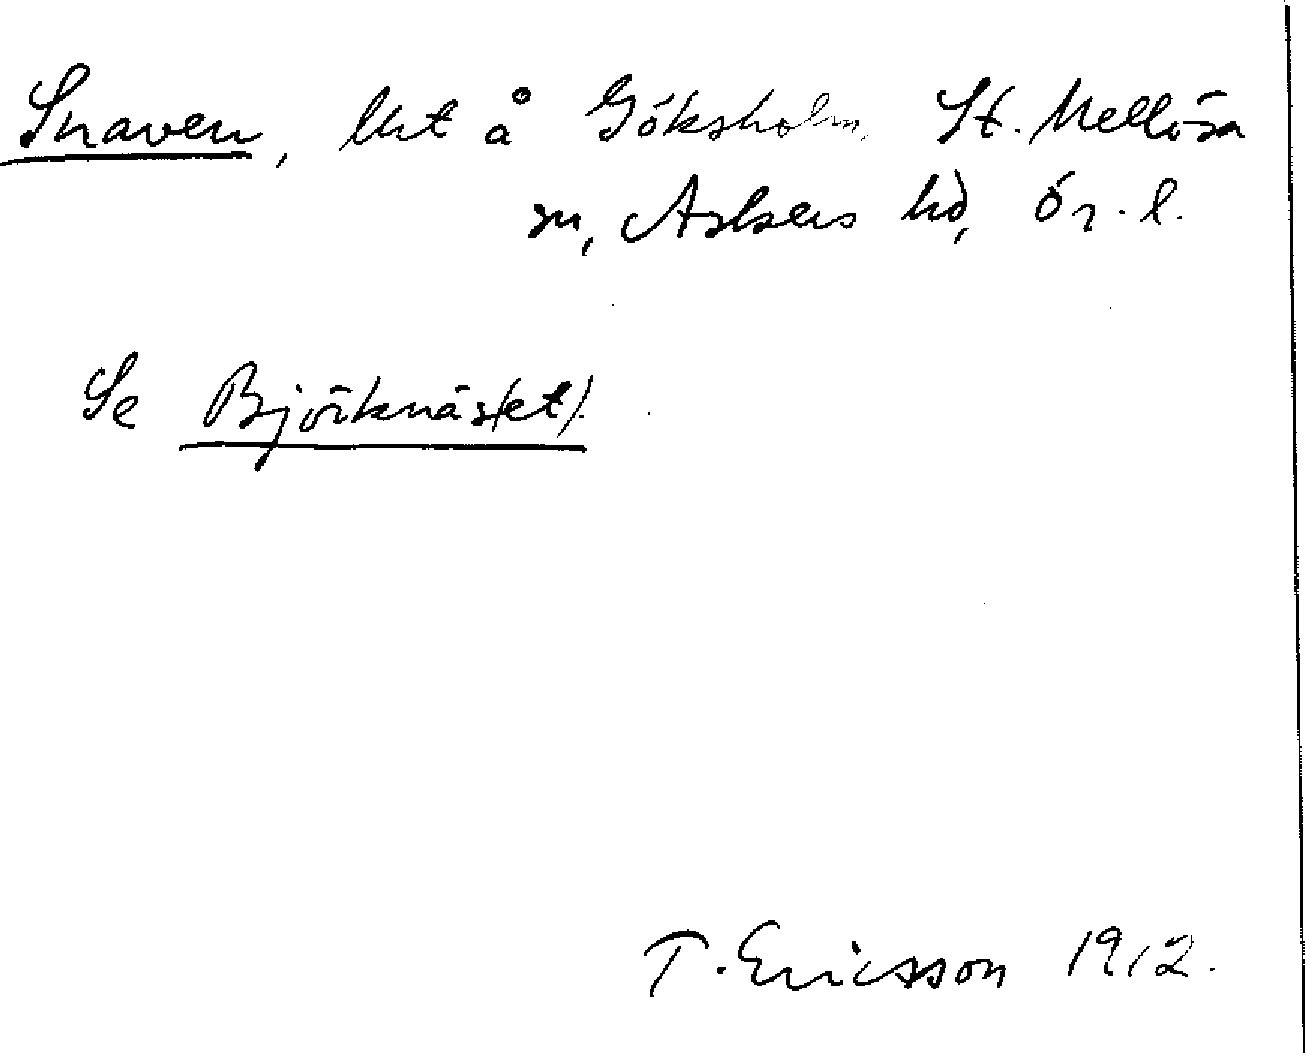 Snaven, lht å Göksholm, St. Mellösa
sn, Askers hd, Ör. l.
Se Björknäs(et).
T. Ericsson 1912.